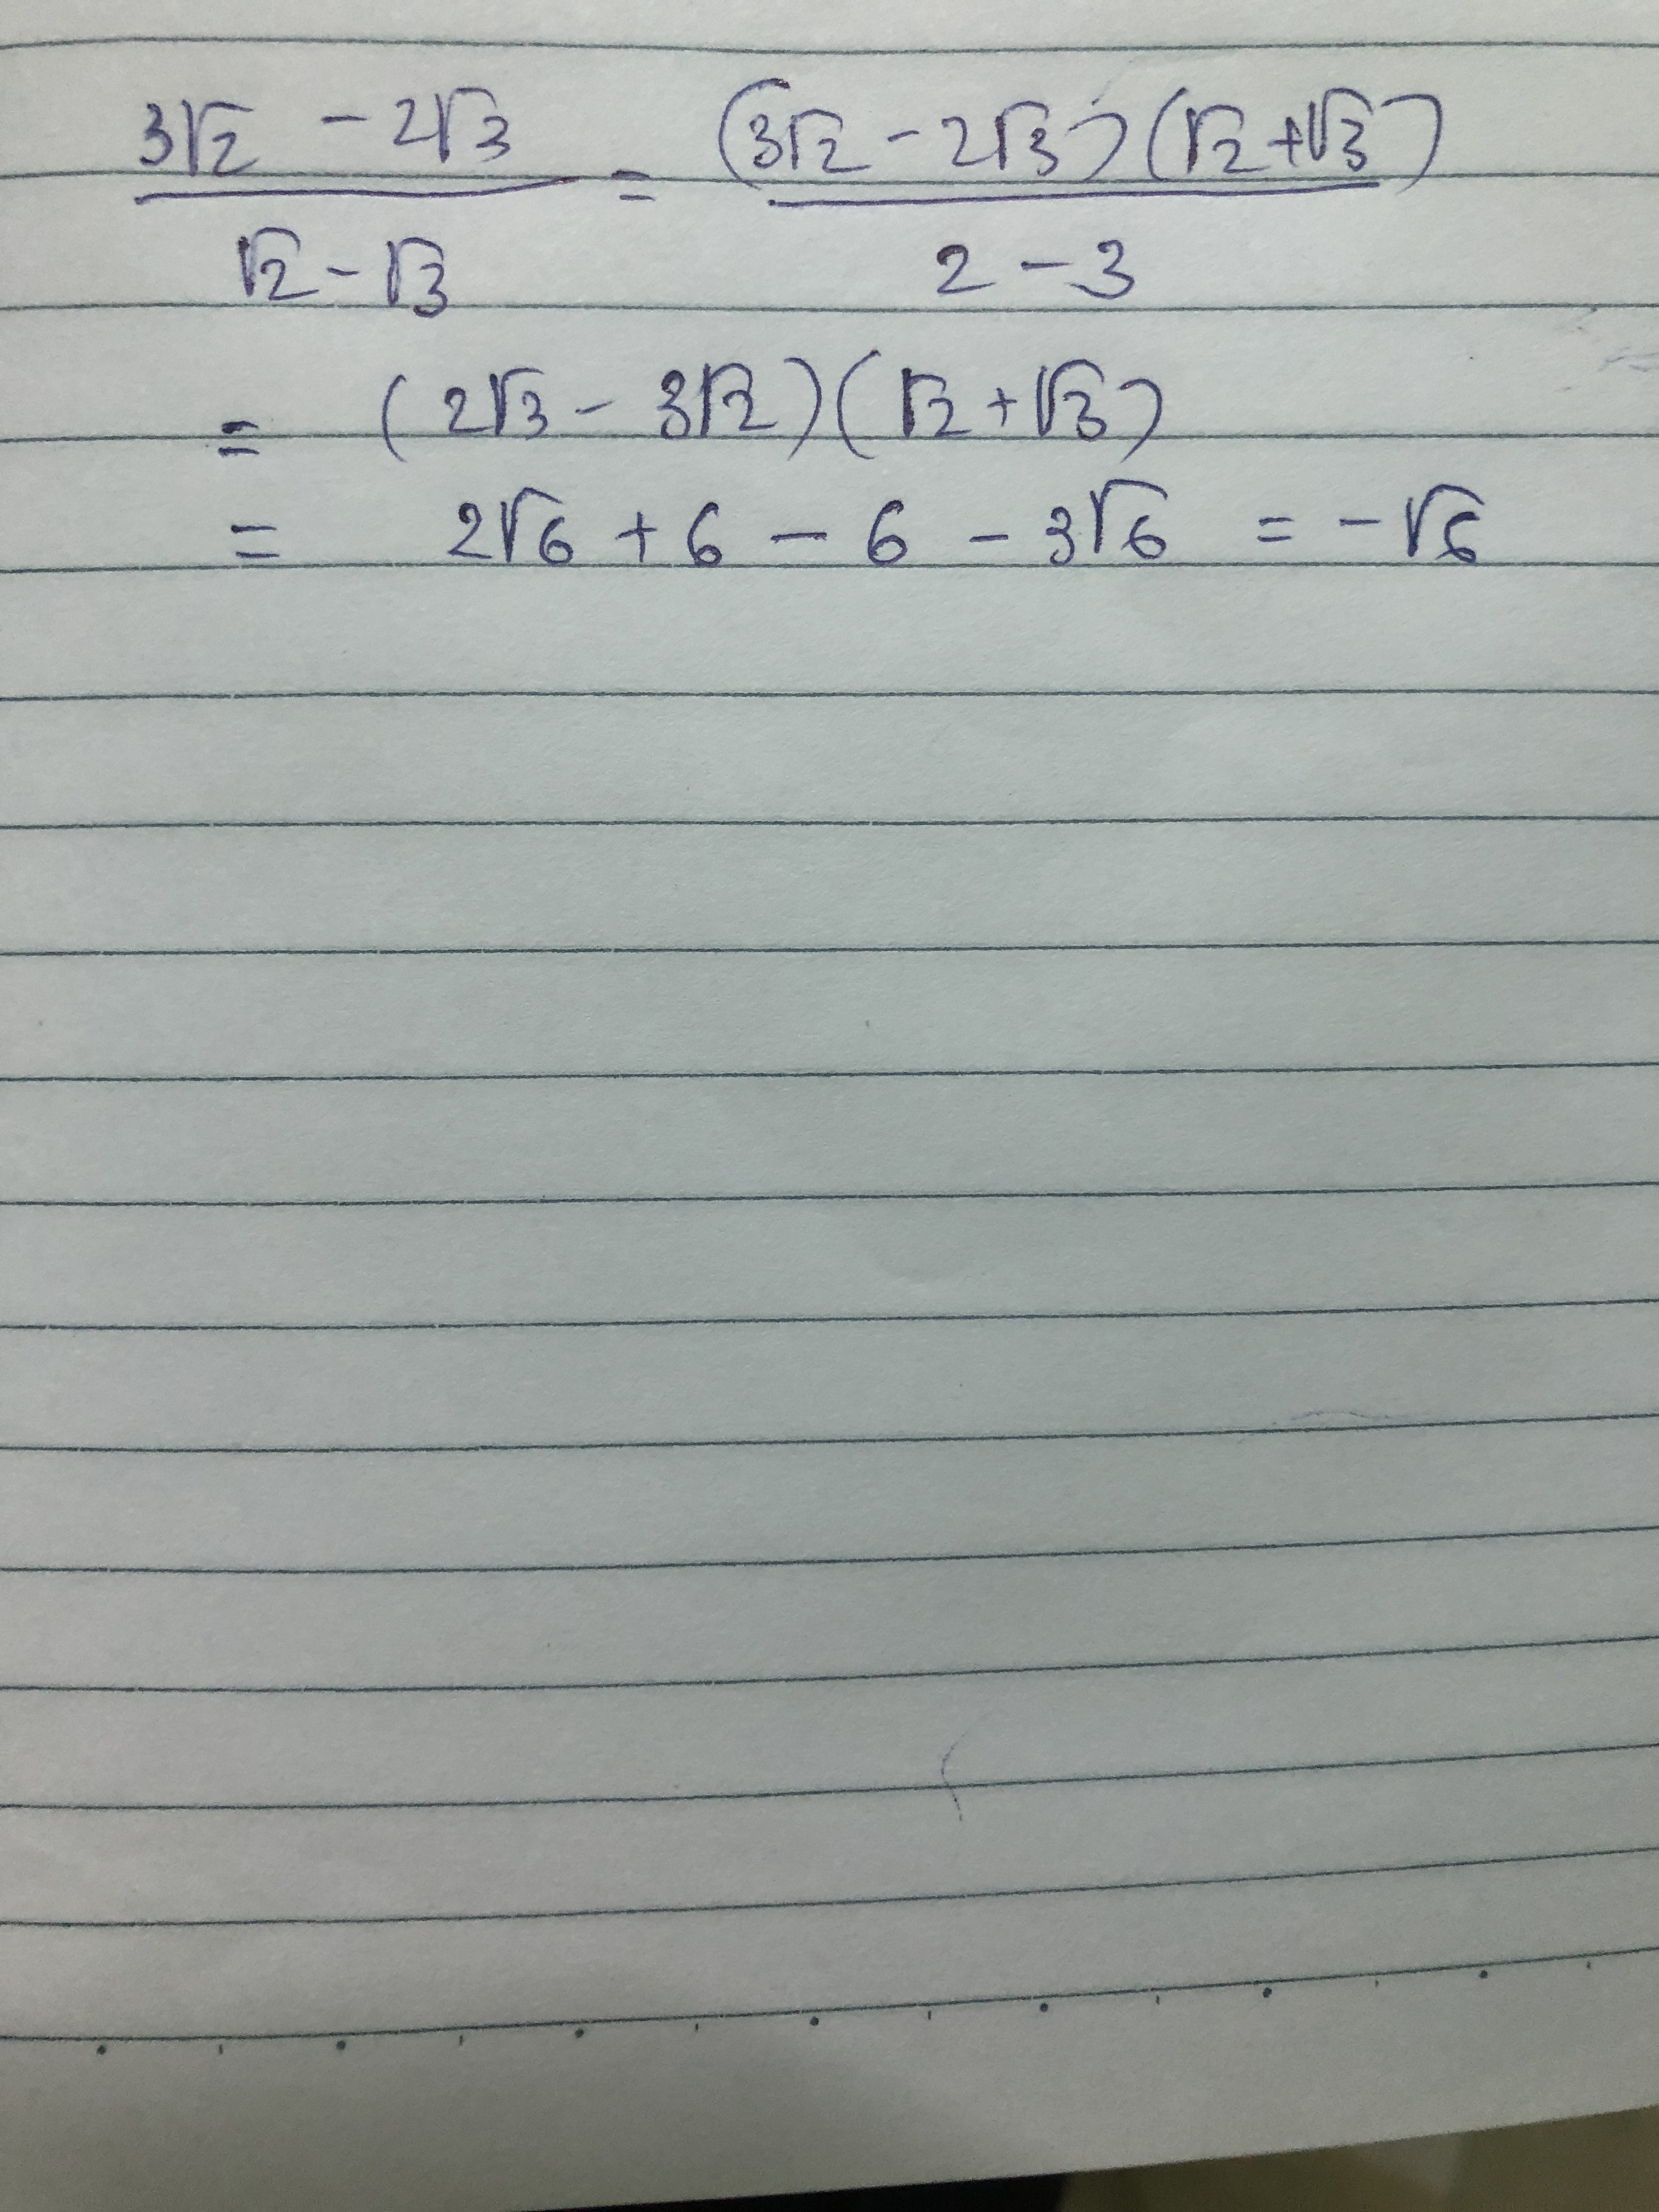 3√2 - 2√3 / √2 - √3 = (3√2 - 2√3)(√2 + √3) / 2 - 3
= (2√3 - 3√2)(√2 + √3)
= 2√6 + 6 - 6 - 3√6 = -√6